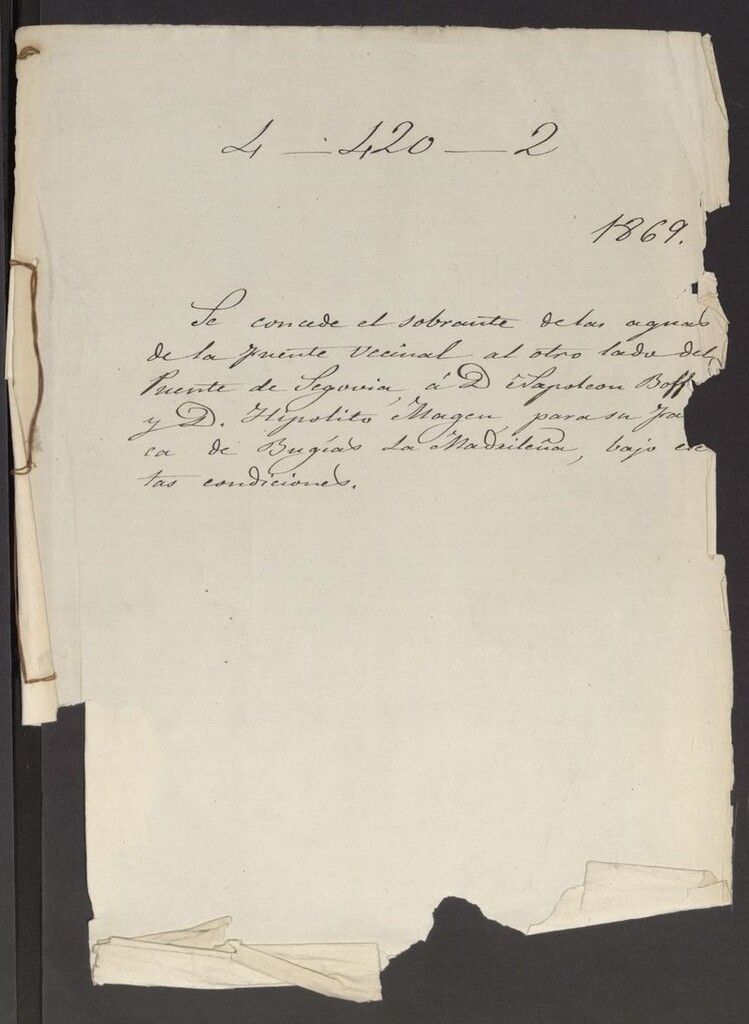 4 — 420 — 2
1869.
Se concede el sobrante de las aguas
de la fuente vecinal al otro lado del
Puente de Segovia, á D Napoleon Boff
y D. Hipolito Magen, para su fa
ca de Bugías La Madrileña, bajo
tas condiciones.